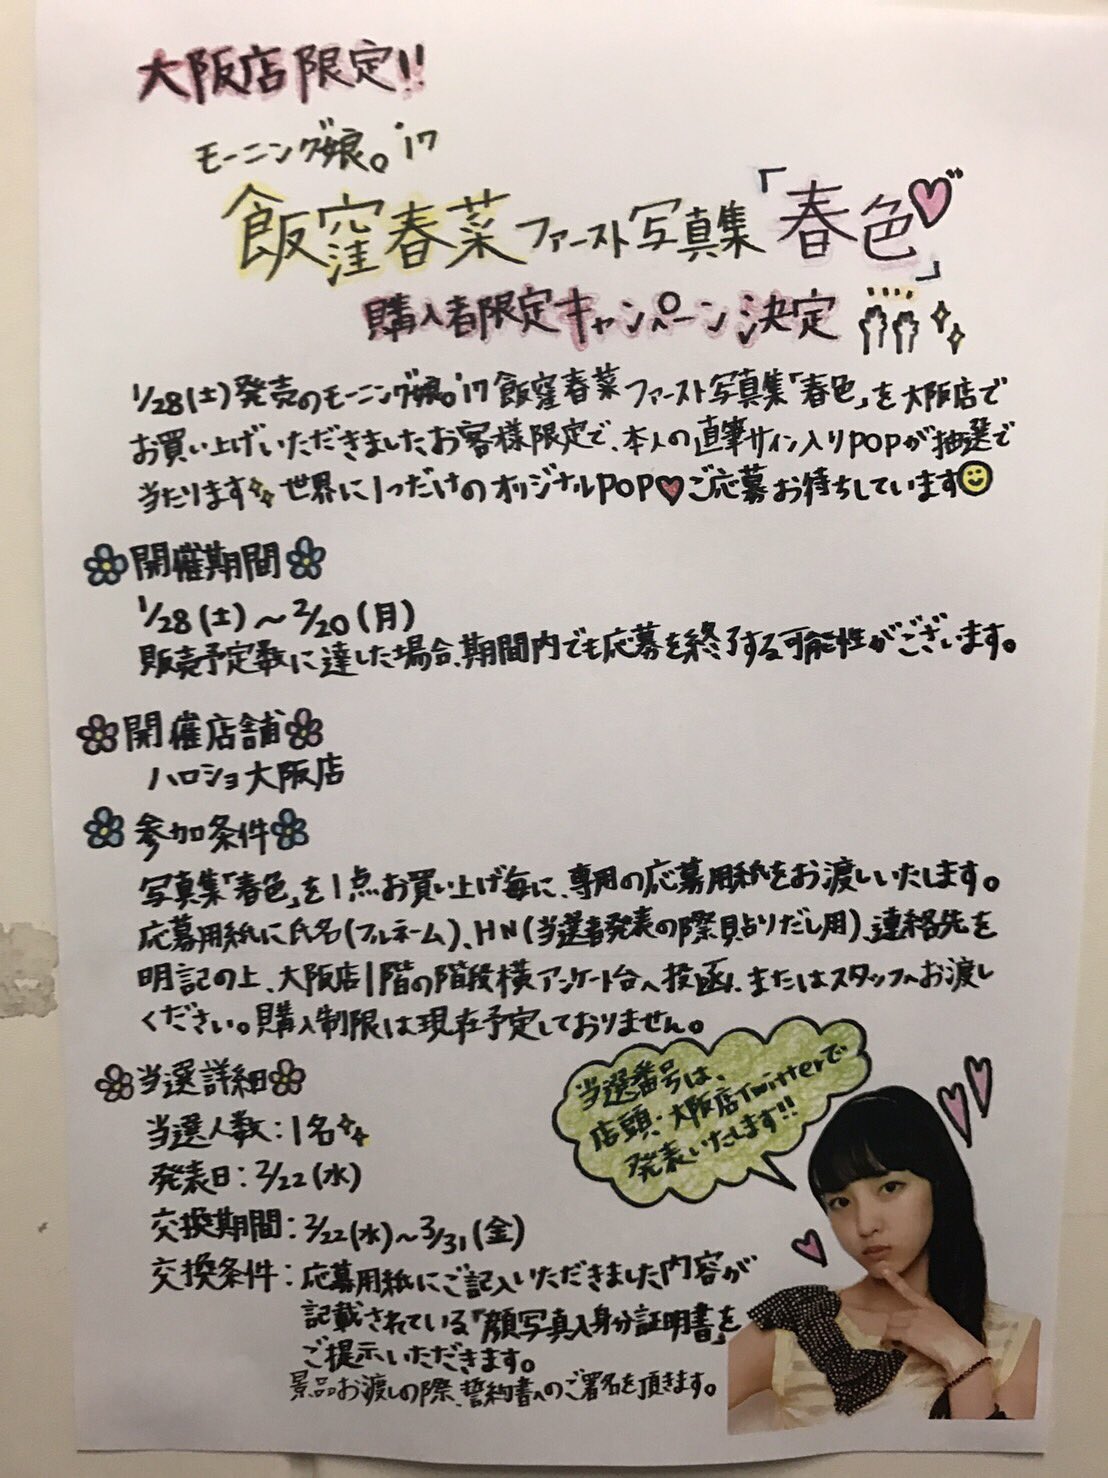 大阪店限定!!
モーニング娘。'17
飯窪春菜ファースト写真集「春色」
購入者限定キャンペーン決定
1/28(土)発売のモーニング娘。'17 飯窪春菜 ファースト写真集「春色」を大阪店で
お買い上げいただきましたお客様限定で、本人の直筆サイン入りPOPが抽選で
当たります 世界に1つだけのオリジナルPOP♥ご応募お待ちしています
開催期間
1/28(土)〜2/20(月)
販売予定数に達した場合、期間内でも応募を終了する可能性がございます。
開催店舗
ハロショ大阪店
参加条件
写真集「春色」を1点お買い上げ毎に、専用の応募用紙をお渡しいたします。
応募用紙に氏名(フルネーム)、HN(当選者発表の際貼りだし用)、連絡先を
明記の上、大阪店1階の階段横アンケート台へ投函、またはスタッフへお渡し
ください。購入制限は現在予定しておりません。
当選詳細
当選人数:1名
発表日:2/22(水)
交換期間:2/22(水)〜3/31(金)
交換条件:応募用紙にご記入いただきました内容が
記載されている『顔写真入身分証明書』を
ご提示いただきます。
景品お渡しの際、誓約書へのご署名を頂きます。
当選番号は、
店頭・大阪店Twitterで
発表いたします!!